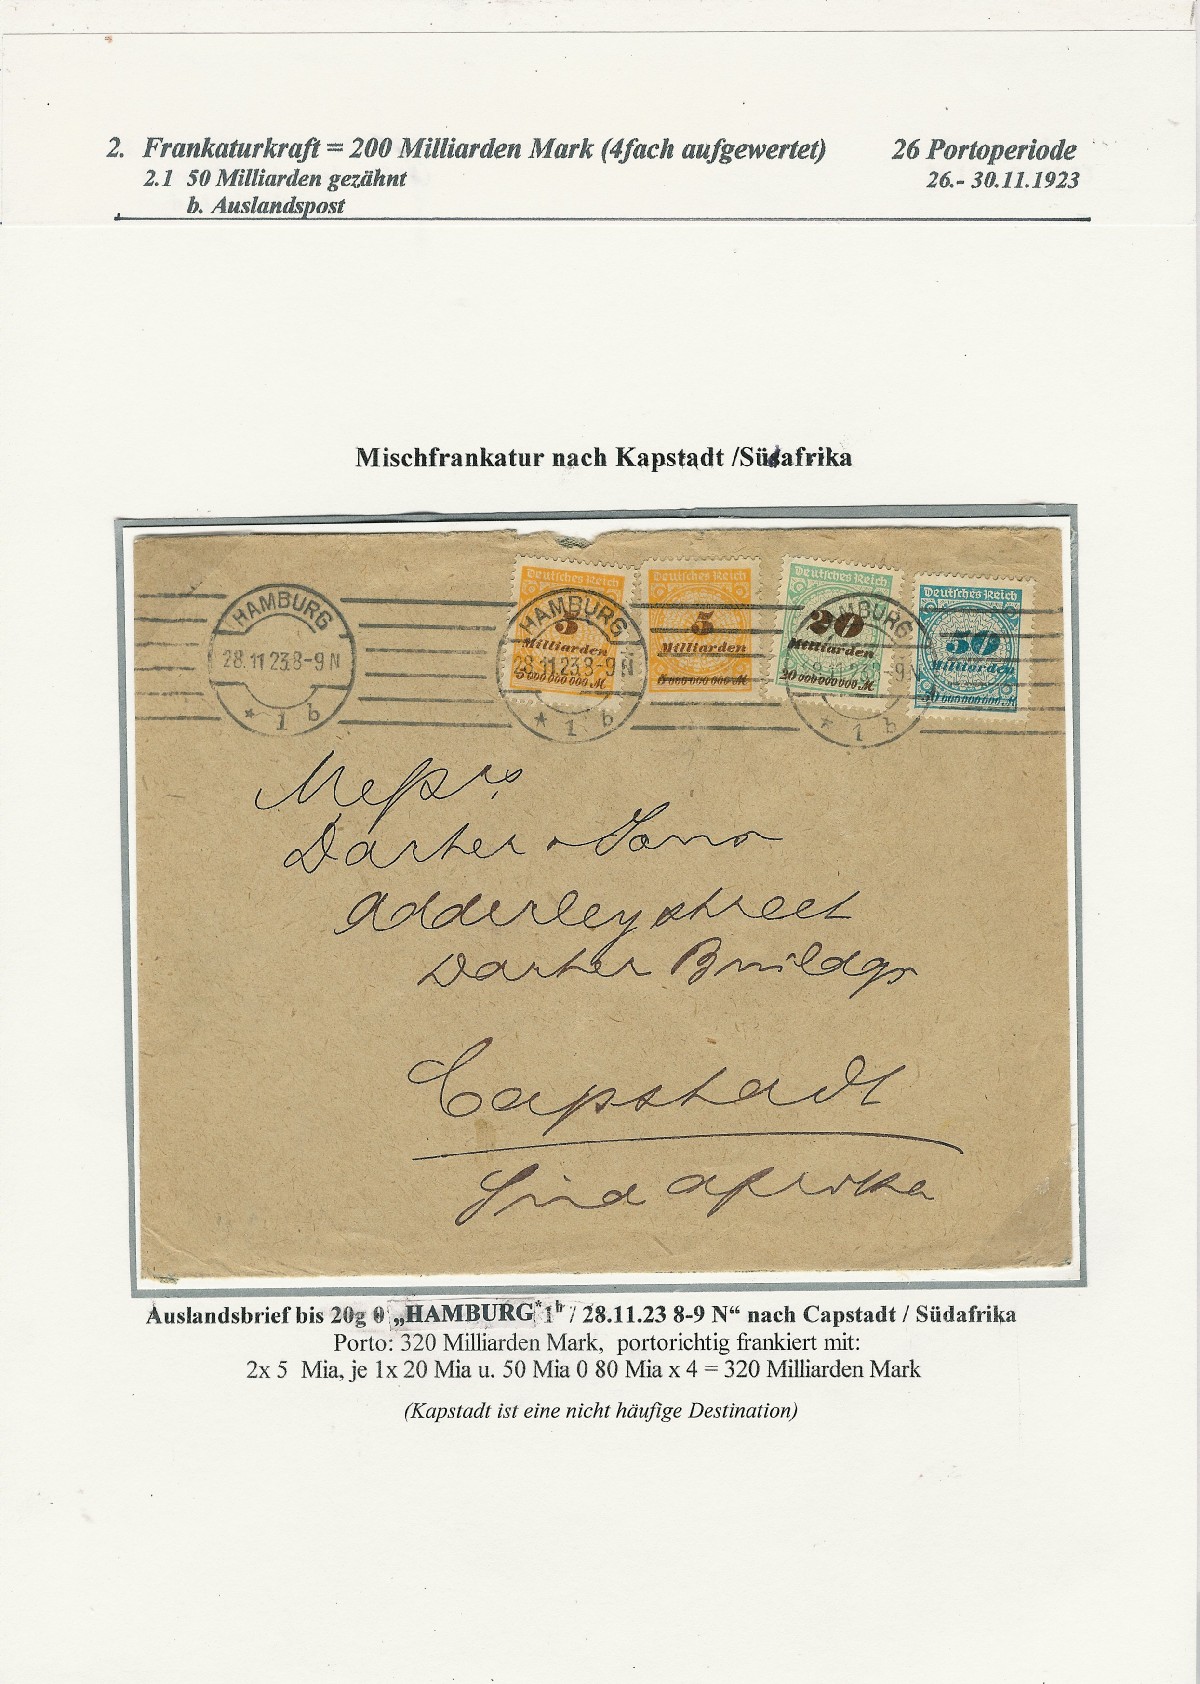 2. Frankaturkraft = 200 Milliarden Mark (4fach aufgewertet) 26 Portoperiode
2.1 50 Milliarden gezähnt 26.- 30.11.1923
b. Auslandspost
Mischfrankatur nach Kapstadt /Südafrika
Deutsches Reich
5
Milliarden
5 000 000 000 M
Deutsches Reich
5
Milliarden
5 000 000 000 M
Deutsches Reich
20
Milliarden
20 000 000 000 M
Deutsches Reich
50
Milliarden
50 000 000 000 M
HAMBURG
28.11.23.8-9 N
* 1 b
HAMBURG
28.11.23.8-9 N
* 1 b
HAMBURG
28.11.23.8-9 N
* 1 b
Messrs
Darter & Sons
Adderleystreet
Darter Buildgs
Capstadt
Südafrika
Auslandsbrief bis 20g 0 „HAMBURG * 1 b / 28.11.23 8-9 N“ nach Capstadt / Südafrika
Porto: 320 Milliarden Mark, portorichtig frankiert mit:
2x 5 Mia, je 1x 20 Mia u. 50 Mia 0 80 Mia x 4 = 320 Milliarden Mark
(Kapstadt ist eine nicht häufige Destination)